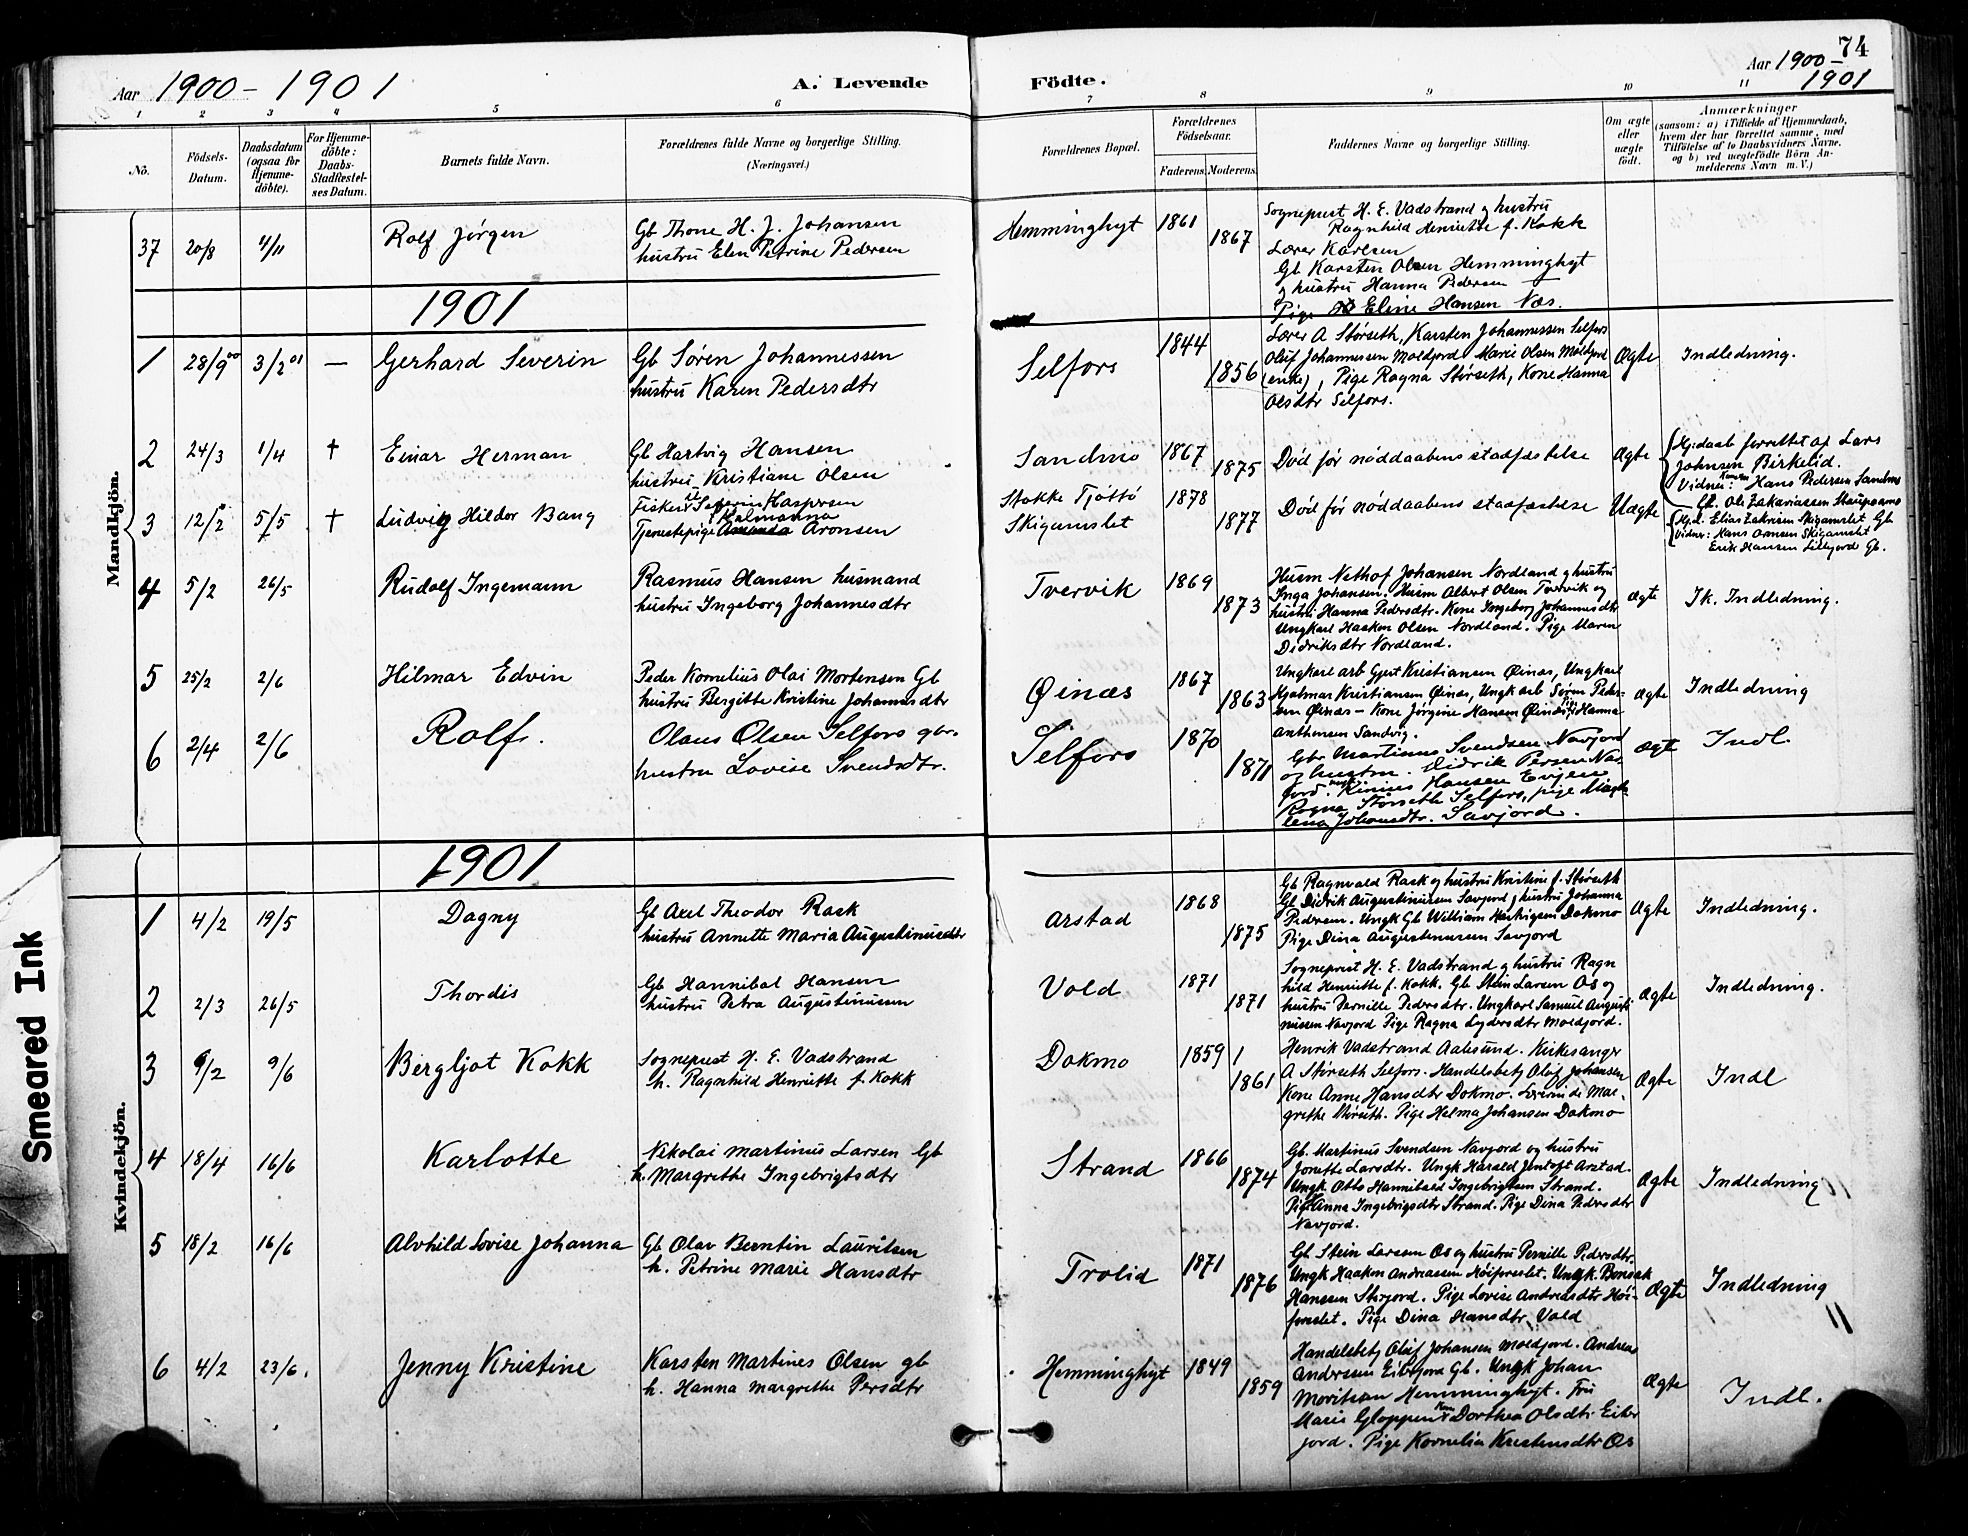 74
Aar 1900 - 1901
A. Levende Födte.
Aar 1900 - 1901
1 2 3 4 5 6 7 8 9 10 11
No.
Födsels-Datum.
Daabsdatum (ogsaa for Hjemmedöbte).
For Hjemmedöbte: Daabs-Stadfestelses Datum.
Barnets fulde Navn.
Forældrenes fulde Navne og borgerlige Stilling. (Næringsvei.)
Forældrenes Bopæl.
Forældrenes Födselsaar.
Faderens. Moderens.
Faddernes Navne og borgerlige Stilling.
Om ægte eller uægte födt.
Anmærkninger
(saasom: a) i Tilfælde af Hjemmedaab,
hvem der har forrettet samme, med
Tilföielse af to Daabsvidners Navne.
og b) ved uægtefödte Börn An-
melderens Navn m. V.)
Mandkjön.
37 20/8 4/11 Rolf Jørgen
Gb Thone H. J. Johansen
hustru Elen Petrine Pedersen
Hemminghyt 1861 1867
Sogneprest H. E. Vadstrand og hustru
Ragnhild Henriette f. Kokk
Lærer Karlsen
Gb Karsten Olsen Hemminghyt
og hustru Hanna Pedersen
Pige Eline Hansen Næs.
1901
1 28/9 00 3/2 01 — Gerhard Severin
Gb Søren Johannessen
hustru Karen Pedersdtr
Selfors 1844 1856
Lærer A Størseth, Karsten Johannessen Selfors
Oluf Johannesen Moldjord Marie Olsen Moldjord
(enke), Pige Ragna Størseth, Kone Hanna
Olsdtr Selfors.
Ægte Indledning.
2 24/3 1/4 † Einar Herman
Gb Hartvig Hansen
hustru Kristiane Olsen
Sandmo 1867 1875
Død før nøddaabens stadfæstelse
Ægte
Hj.daab forrettet af Lars
Johnsen Birkelid.
Vidner: Hans Pedersen Sandmo
Ole Zakariassen
3 12/2 5/5 † Ludvig Hildor Bang
Fisker Severin Kaspersen
Tjenestepige Kalmanna Aronsen
Stokke Tjøttö
Skigamslet 1878 1877
Død før nøddaabens stadfæstelse
Uægte
Hj.d. Elias Zakrisen Skigamslet Gb
Vidner: Hans Skigamslet
Erik Hansen Lilljord Gb.
4 5/2 26/5 Rudolf Ingemann
Rasmus Hansen husmand
hustru Ingeborg Johannesdtr
Tvervik 1869 1873
Husm Nethof Johansen Nordland og hustru
Inga Johansen. Husm Albert Olsen Tvervik og
hustru Hanna Pedersdtr. Kone Ingeborg Johannesdtr
Ungkarl Haakon Olsen Nordland. Pige Maren
Didriksdtr Nordland.
ægte Ik. Indledning.
5 25/2 2/6 Hilmar Edvin
Peder Kornelius Olai Mortensen Gb
hustru Bergitte Kristine Johannesdtr
Øinæs 1867 1863
Ungkarl arb Gjert Kristiansen Øinæs, Ungkarl
Hjalmar Kristiansen Øinæs, Ungk arb Søren Peder-
sen Øinæs - Kone Jørgine Hansen Øinæs, Hanna
Anthonsen Sandvig.
ægte Indledning
6 2/4 2/6 Rolf.
Olaus Olsen Selfors gbr.
hustru Lovise Svendsdtr.
Selfors 1870 1871
Gbr. Martinus Svendsen Navjord
og hustru. Didrik Persen Nav-
jord. Hansen Evjen
Ragna Størseth Selfors, pige Magda-
lena Johansdtr. Savjord.
ægte Indl.
Kvindekjön.
1901
1 4/2 19/5 Dagny
Gb Axel Theodor Rask
hustru Annette Maria Augustinusdtr
Arstad 1868 1875
Gb Ragnvald Rask og hustru Kristine f. Størseth
Gb Didrik Augustinussen Savjord og hustru Johanna
Pedersen. Ungk Gb William Hartvigsen Dokmo
Pige Dina Augustinussen Savjord
Ægte Indledning.
2 2/3 26/5 Thordis
Gb Hannibal Hansen
hustru Petra Augustinussen
Vold 1871 1871
Sogneprest H. E. Vadstrand og hustru Ragn
hild Henriette f. Kokk. Gb Stein Larsen Os og
hustru Pernille Pedersdtr. Ungkarl Samuel Augusti-
nussen Navjord Pige Ragna Lydersdtr Moldjord.
Ægte Indledning.
3 9/2 9/6 Bergljot Kokk
Sogneprest H. E. Vadstrand
h. Ragnhild Henriette f. Kokk
Dokmo 1859 1861
Henrik Vadstrand Aalesund. Kirkesanger
A Størseth Selfors. Handelsbetj Oluf Johansen
Kone Anne Hansdtr Dokmo. Lærerinde Mar-
grethe Størseth. Pige Helma Johansen Dokmo
Ægte Indl
4 18/4 16/6 Karlotte
Nikolai Martinus Larsen Gb
h. Margrethe Ingebrigtsdtr
Strand 1866 1874
Gb. Martinus Svendsen Navjord og hustru
Jonette Larsdtr. Ungk Harald Jentoft Arstad.
Ungk. Otto Hannibald Ingebrigtsen Strand.
Pige Anna Ingebrigsdtr Strand. Pige Dina Pedersdtr
Navjord.
Ægte Indledning
5 18/2 16/6 Alvhild Lovise Johanna
Gb Olav Berntin Lauritsen
h. Petrine Marie Hansdtr
Trolid 1871 1876
Gb. Stein Larsen Os og hustru Pernille Pedersdtr.
Ungk Haakon Andreassen Høiforslet. Ungk. Bonsak
Hanssen Storjord. Pige Lovise Andreasdtr Høi-
forslet. Pige Dina Hansdtr Vold
Ægte Indledning
6 4/2 23/6. Jenny Kristine
Karsten Martines Olsen gb
h. Hanna Margrethe Persdtr
Hemminghyt 1849 1859
Handelsbetj Oluf Johansen Moldjord. Andreas
Anderssen Eiterjord Gb. Ungk Johan
Moritsen Hemminghyt. Fru
Marie Gloppen Kone Dorthea Olsdtr Eiter
jord. Pige Kornelia Kristensdtr Os
Ægte Indl.
Smeared Ink